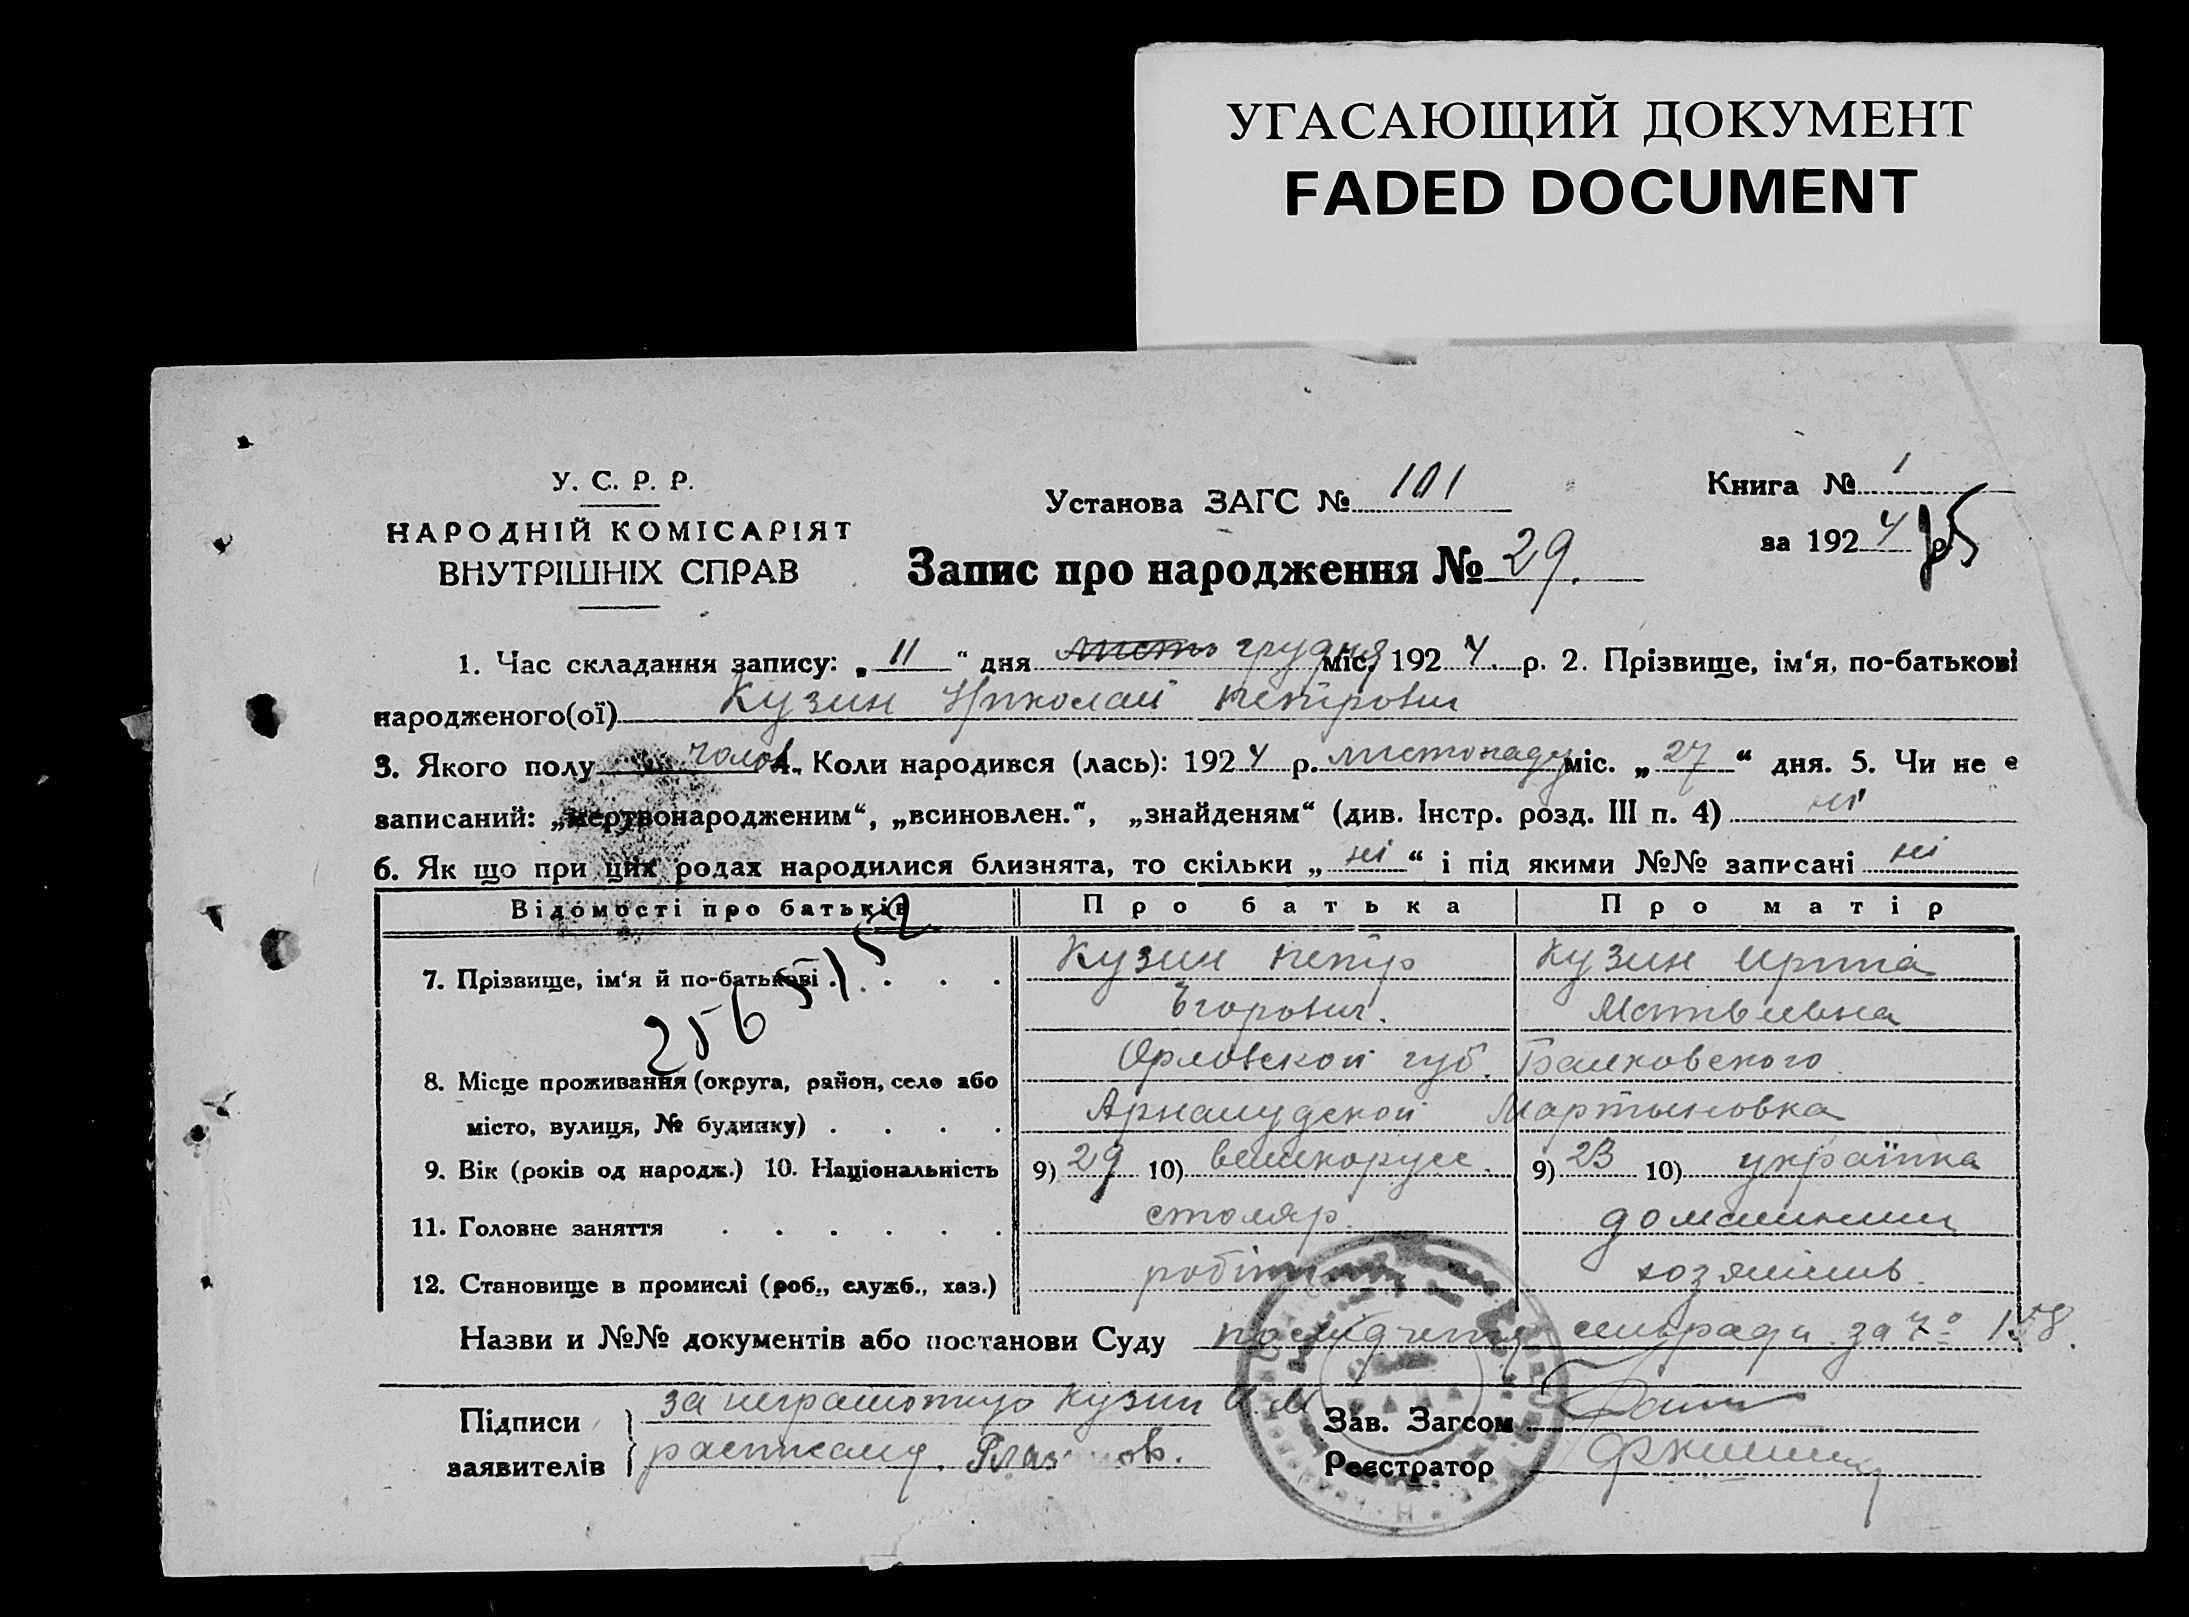 УГАСАЮЩИЙ ДОКУМЕНТ
FADED DOCUMENT
У. С. Р. Р.
НАРОДНІЙ КОМІСАРІЯТ
ВНУТРІШНІХ СПРАВ
Установа ЗАГС № 101
Запис про народження № 29.
Книга № 1
за 1924 р
1. Час складання запису: „11“ дня листо грудня міс, 1924. р. 2. Прізвище, ім‘я, по-батькові
народженого(ої) Кузин Николай Петрович
3. Якого полу чолов. 4. Коли народився (лась): 1924 р. листопаду міс. „27“ дня. 5. Чи не є
записаний: „мертвонародженим“, „всиновлен.“, „знайденям“ (див. Інстр. розд. III п. 4) ні
6. Як що при цих родах народилися близнята, то скільки „ні“ і під якими №№ записані ні
Відомості про батьків Про батька Про матір
7. Прізвище, ім‘я й по-батькові Кузин Петр Кузин Ирина
Егорович. Матвеевна
256
8. Місце проживання (округа, район, село або Орловской губ.
місто, вулиця, № будинку) Мартыновка
9. Вік (років од народж.) 10. Національність 9) 29 10) великорусс. 9) 23 10) українка
11. Головне заняття столяр. домашним
12. Становище в промислі (роб., служб., хаз.) робітник
Назви и №№ документів або постанови Суду посвідчення сильради за №
Підписи заявителів за неграмотную Кузин И. М
Зав. Загсом
Реєстратор